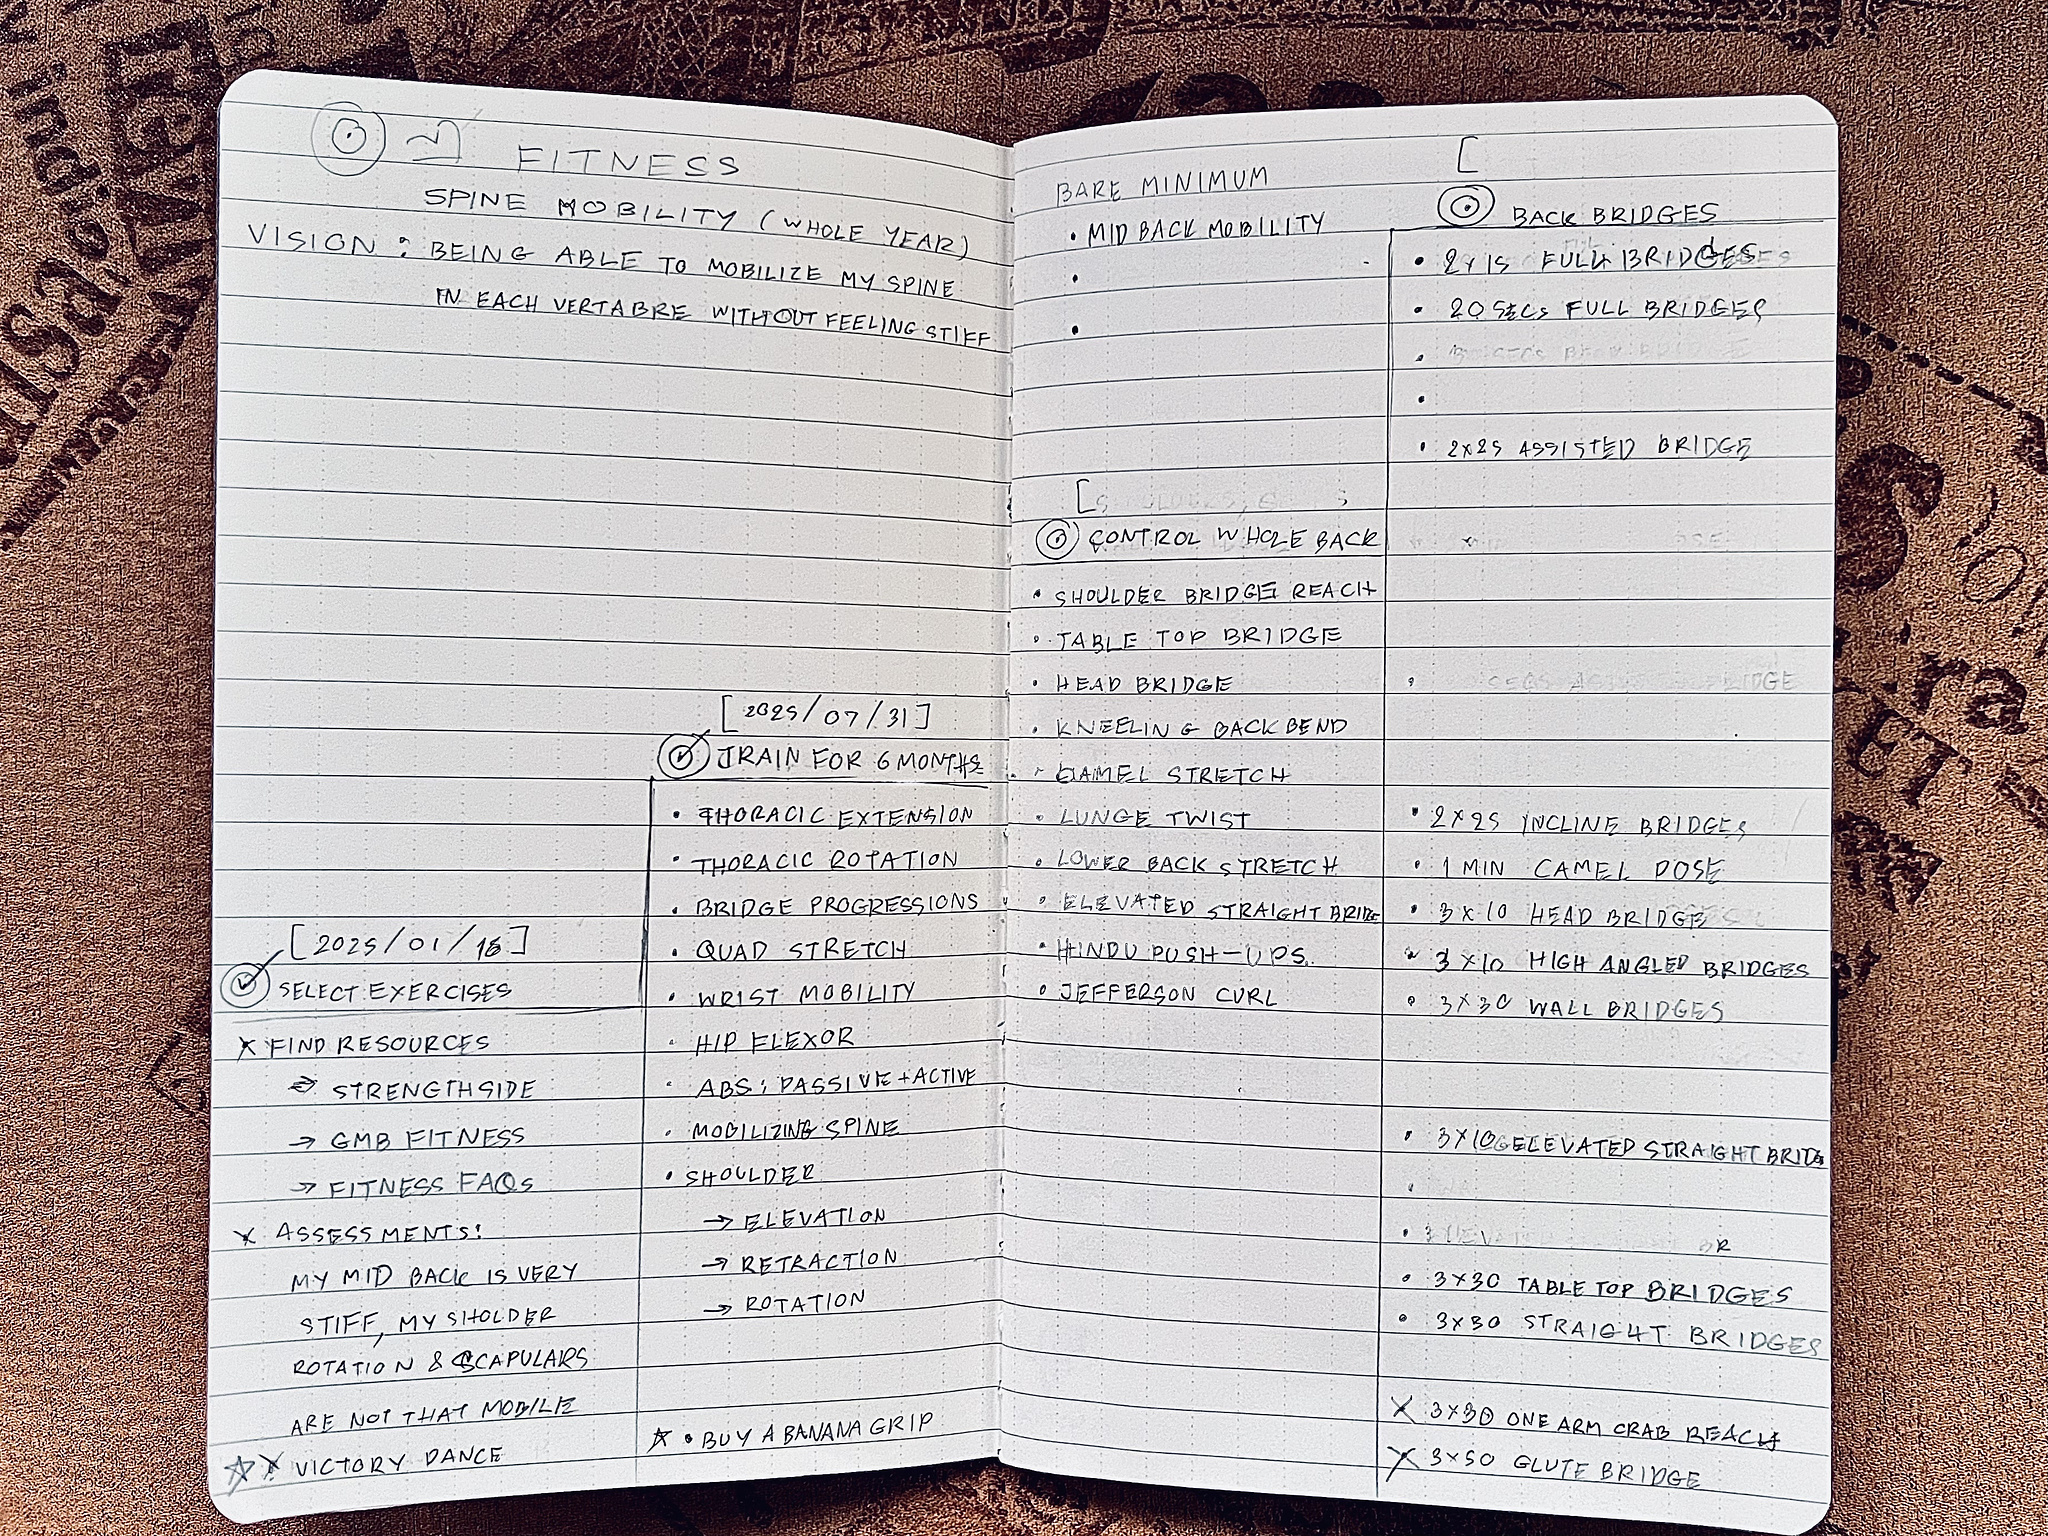 FITNESS
SPINE MOBILITY (WHOLE YEAR)
VISION : BEING ABLE TO MOBILIZE MY SPINE
IN EACH VERTABRE WITHOUT FEELING STIFF
[2025/01/15]
SELECT EXERCISES
× FIND RESOURCES
→ STRENGTHSIDE
→ GMB FITNESS
→ FITNESS FAQs
× ASSESSMENTS:
MY MID BACK IS VERY
STIFF, MY SHOLDER
ROTATION & SCAPULARS
ARE NOT THAT MOBILE
☆ × VICTORY DANCE
[2025/07/31]
TRAIN FOR 6 MONTHS
• THORACIC EXTENSION
• THORACIC ROTATION
• BRIDGE PROGRESSIONS
• QUAD STRETCH
• WRIST MOBILITY
• HIP FLEXOR
• ABS: PASSIVE + ACTIVE
• MOBILIZING SPINE
• SHOULDER
→ ELEVATION
→ RETRACTION
→ ROTATION
☆ • BUY A BANANA GRIP
BARE MINIMUM
• MID BACK MOBILITY
•
•
[
CONTROL WHOLE BACK
• SHOULDER BRIDGE REACH
• TABLE TOP BRIDGE
• HEAD BRIDGE
• KNEELING BACK BEND
• CAMEL STRETCH
• LUNGE TWIST
• LOWER BACK STRETCH
• ELEVATED STRAIGHT BRIDGE
• HINDU PUSH-UPS
• JEFFERSON CURL
[
BACK BRIDGES
• 2×15 FULL BRIDGES
• 20 SECS FULL BRIDGES
•
•
• 2×25 ASSISTED BRIDGE
•
• 2×25 INCLINE BRIDGES
• 1 MIN CAMEL POSE
• 3×10 HEAD BRIDGE
• 3×10 HIGH ANGLED BRIDGES
• 3×30 WALL BRIDGES
• 3×10 ELEVATED STRAIGHT BRIDG
•
•
• 3×30 TABLE TOP BRIDGES
• 3×30 STRAIGHT BRIDGES
× 3×30 ONE ARM CRAB REACH
× 3×50 GLUTE BRIDGE